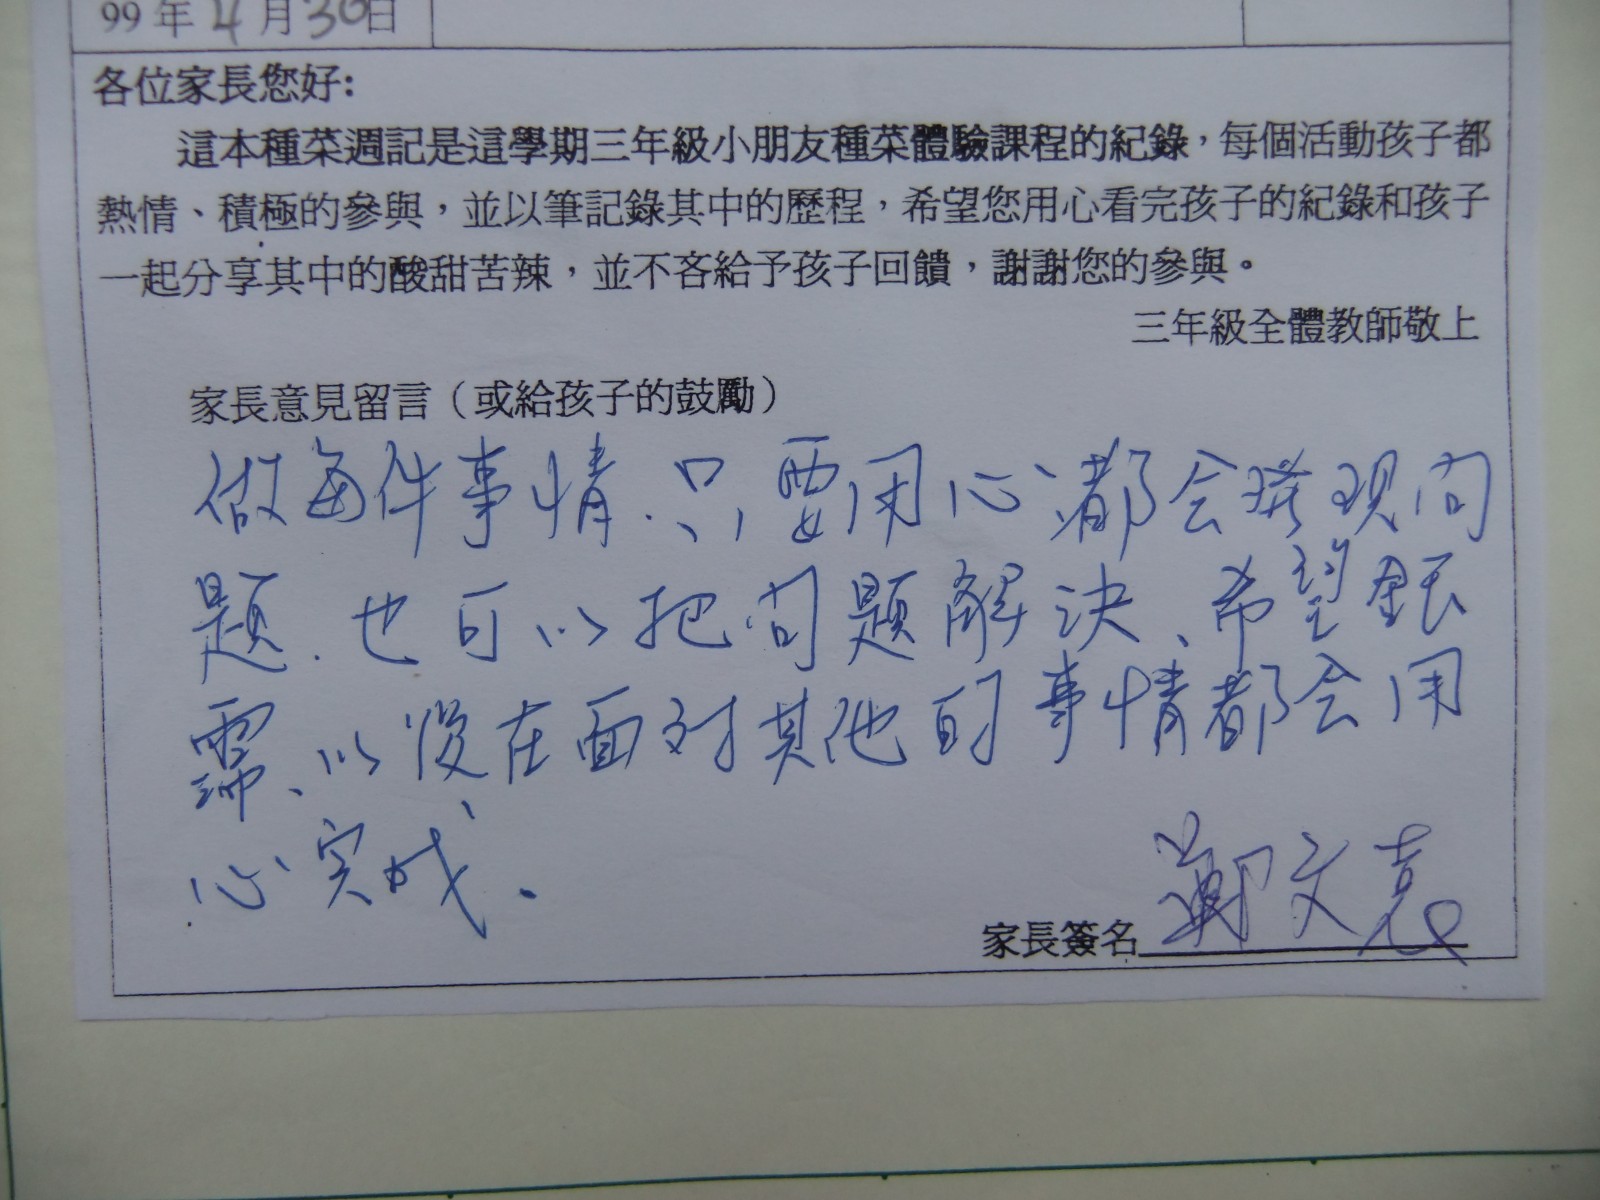 99年4月30日
各位家長您好:
這本種菜週記是這學期三年級小朋友種菜體驗課程的紀錄，每個活動孩子都
熱情、積極的參與，並以筆記錄其中的歷程，希望您用心看完孩子的紀錄和孩子
一起分享其中的酸甜苦辣，並不吝給予孩子回饋，謝謝您的參與。
三年級全體教師敬上
家長意見留言（或給孩子的鼓勵）
做每件事情.只要用心、都会發現问
題.也可以把问題解決、希望銀
霈、以後在面对其他的事情都会用
心完成.
家長簽名 鄭文